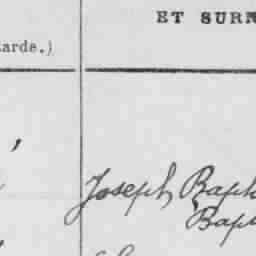 ET SURN
arde.)
Joseph Bapt
Bap